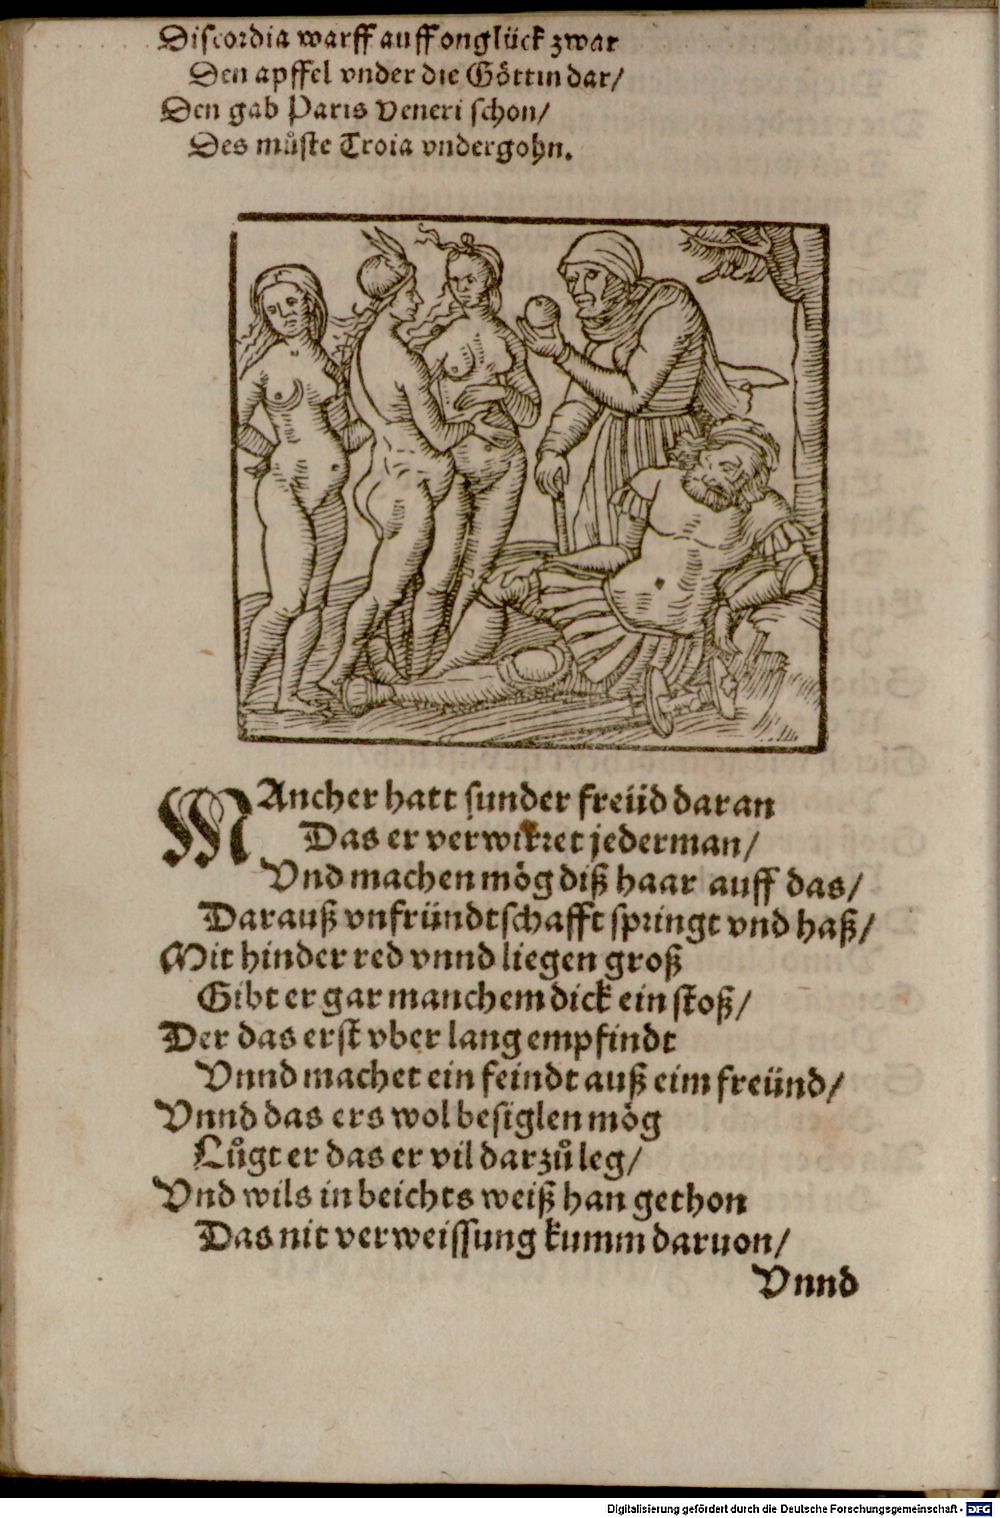 Discordia warff auff onglück zwar
Den apffel vnder die Göttin dar/
Den gab Paris Veneri schon/
Des můste Troia vndergohn.
MAncher hatt sunder freüd daran
Das er verwirret jederman/
Vnd machen mög diß haar auff das/
Darauß vnfründtschafft springt vnd haß/
Mit hinder red vnnd liegen groß
Gibt er gar manchem dick ein stoß/
Der das erst vber lang empfindt
Vnnd machet ein feindt auß eim freünd/
Vnnd das ers wol besiglen mög
Lůgt er das er vil darzů leg/
Vnd wils in beichts weiß han gethon
Das nit verweissung kumm daruon/
Vnnd
Digitalisierung gefördert durch die Deutsche Forschungsgemeinschaft - DFG